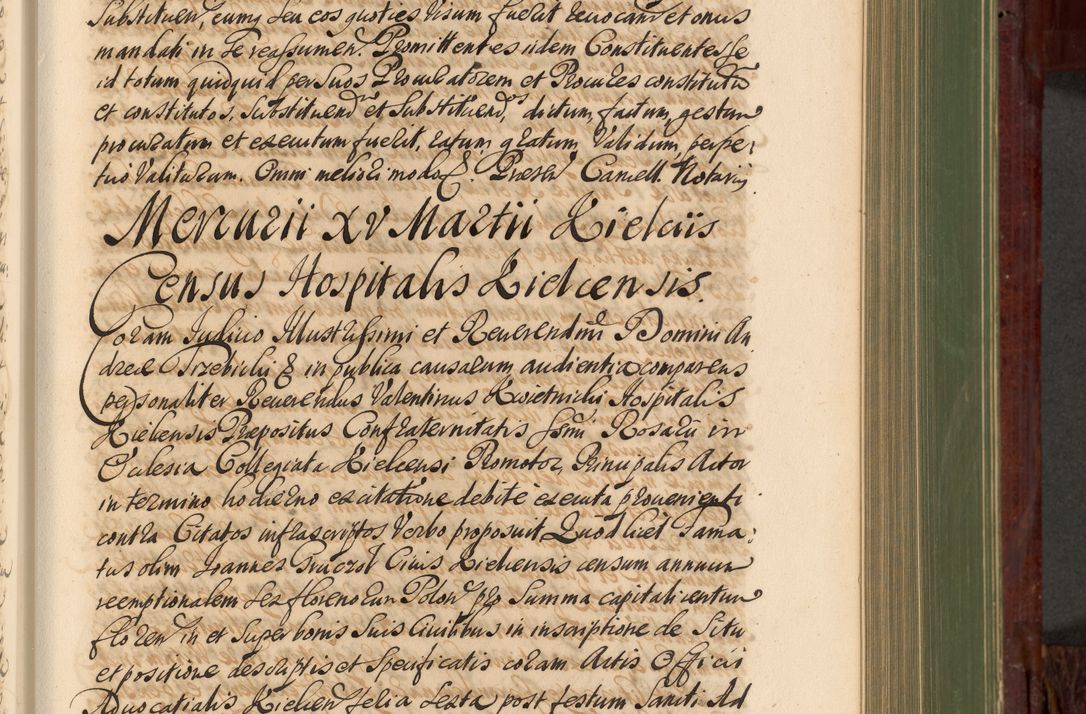 Substituen, eumq seu eos quoties Visum fuerit reuocand et onus
mandati in se reassumen. Promittentes iidem Constituentes se
id totum quidquid per suos Procuratorem et Procures constitutu
et constitutos, Substituend et Substituend, dictum, factum, gestum
procuratum et executum fuerit, ratum, gratum, Validum, perpe,
tuo Valiturum. Omni meliori modo. Presen Cancell. Notarij
Mercurii XV Martii Kielciis
Census Hospitalis Kielcensis.
Coram Judicio Illustrissimi et Reuerendmi D Domini An
dreae Trzebicki & in publica causarum audientia comparens
personaliter Reuerendus Valentinus Kwietnicki Hospitalis
Kielcensis Praepositus Confraternitatis Ssmi Rosarii in
Ecclesia Collegiata Kielcensi Promotor, Principalis Actor
in termino hodierno ex citatione debite executa prouenienti
contra Citatos infrascriptos Verbo proposuit Quod licet Fama,
tus olim Joannes Ciuis Kielcensis censum annuum
reemptionalem sex florenorum Polon pro Summa capitali centum
floren in et super bonis suis Ciuilibus in inscriptione de Situ
et positione descriptis et specificatis coram Actis Officii
Aduocatialis Kielcen feria sexta post festum Sancti Ad